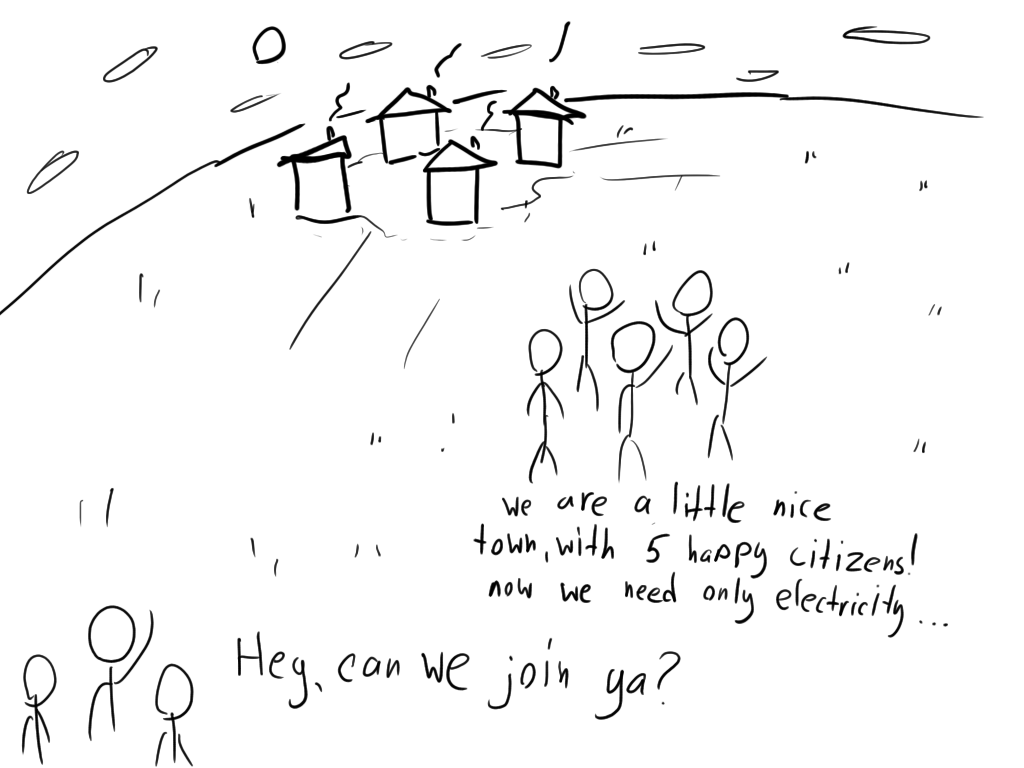 we are a little nice
town, with 5 happy citizens!
now we need only electricity...
Hey, can we join ya?